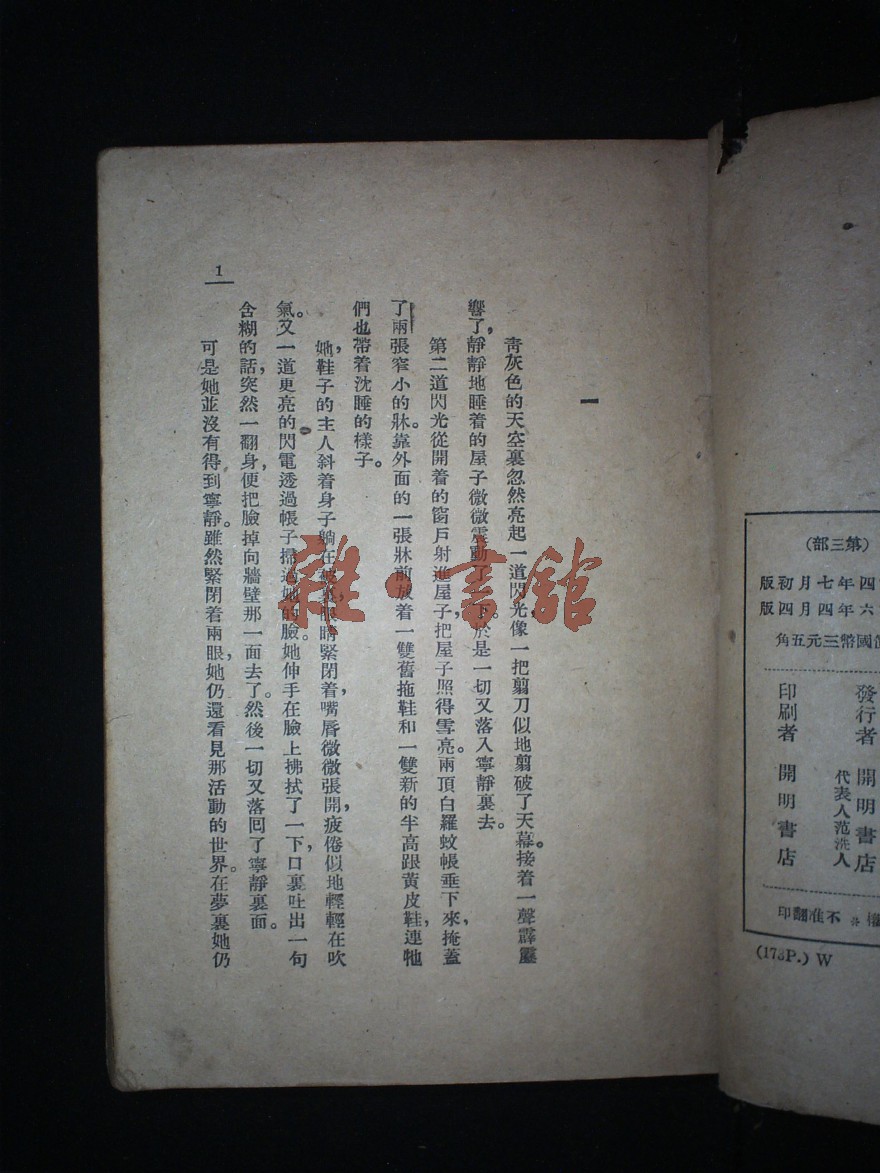 （第三部）
四年七月初版
六年四月四版
國幣三元五角
發行者 開明書店
代表人范洗人
印刷者 開明書店
不准翻印
(173P.) W
一
青灰色的天空裏忽然亮起一道閃光像一把剪刀似地剪破了天幕。接着一聲霹靂
響了，靜靜地睡着的屋子微微震動了一下。於是一切又落入寧靜裏去。
第二道閃光從開着的窗戶射進屋子，把屋子照得雪亮。兩頂白羅蚊帳垂下來，掩蓋
了兩張窄小的牀。靠外面的一張牀前放着一雙舊拖鞋和一雙新的半高跟黃皮鞋，連牠
們也帶着沈睡的樣子。
她，鞋子的主人斜着身子躺在被裏，眼睛緊閉着，嘴唇微微張開，疲倦似地輕輕在吹
氣。又一道更亮的閃電透過帳子掃過她的臉。她伸手在臉上拂拭了一下，口裏吐出一句
含糊的話，突然一翻身，便把臉掉向牆壁那一面去了。然後一切又落回了寧靜裏面。
可是她並沒有得到寧靜。雖然緊閉着兩眼，她仍還看見那活動的世界。在夢裏她仍
1
雜·書館